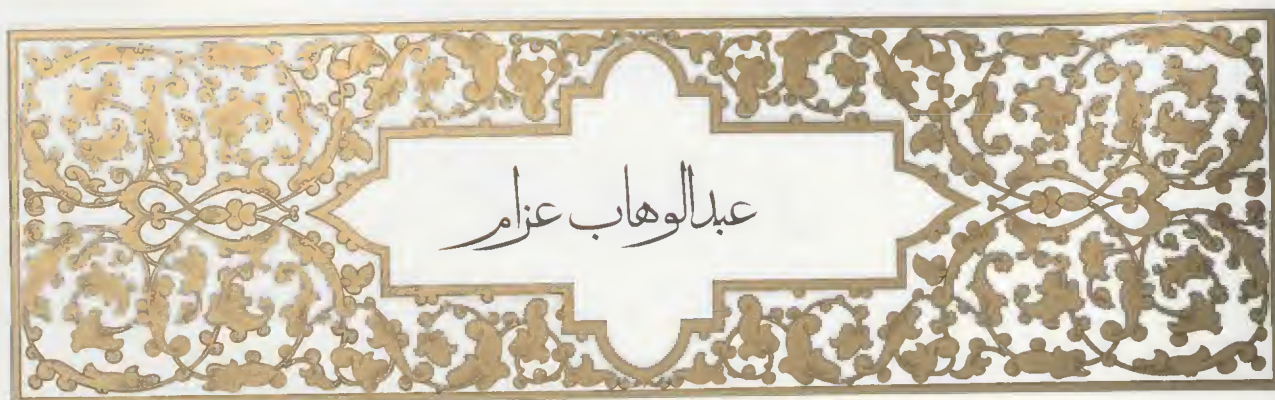 عبدالوهاب عزام